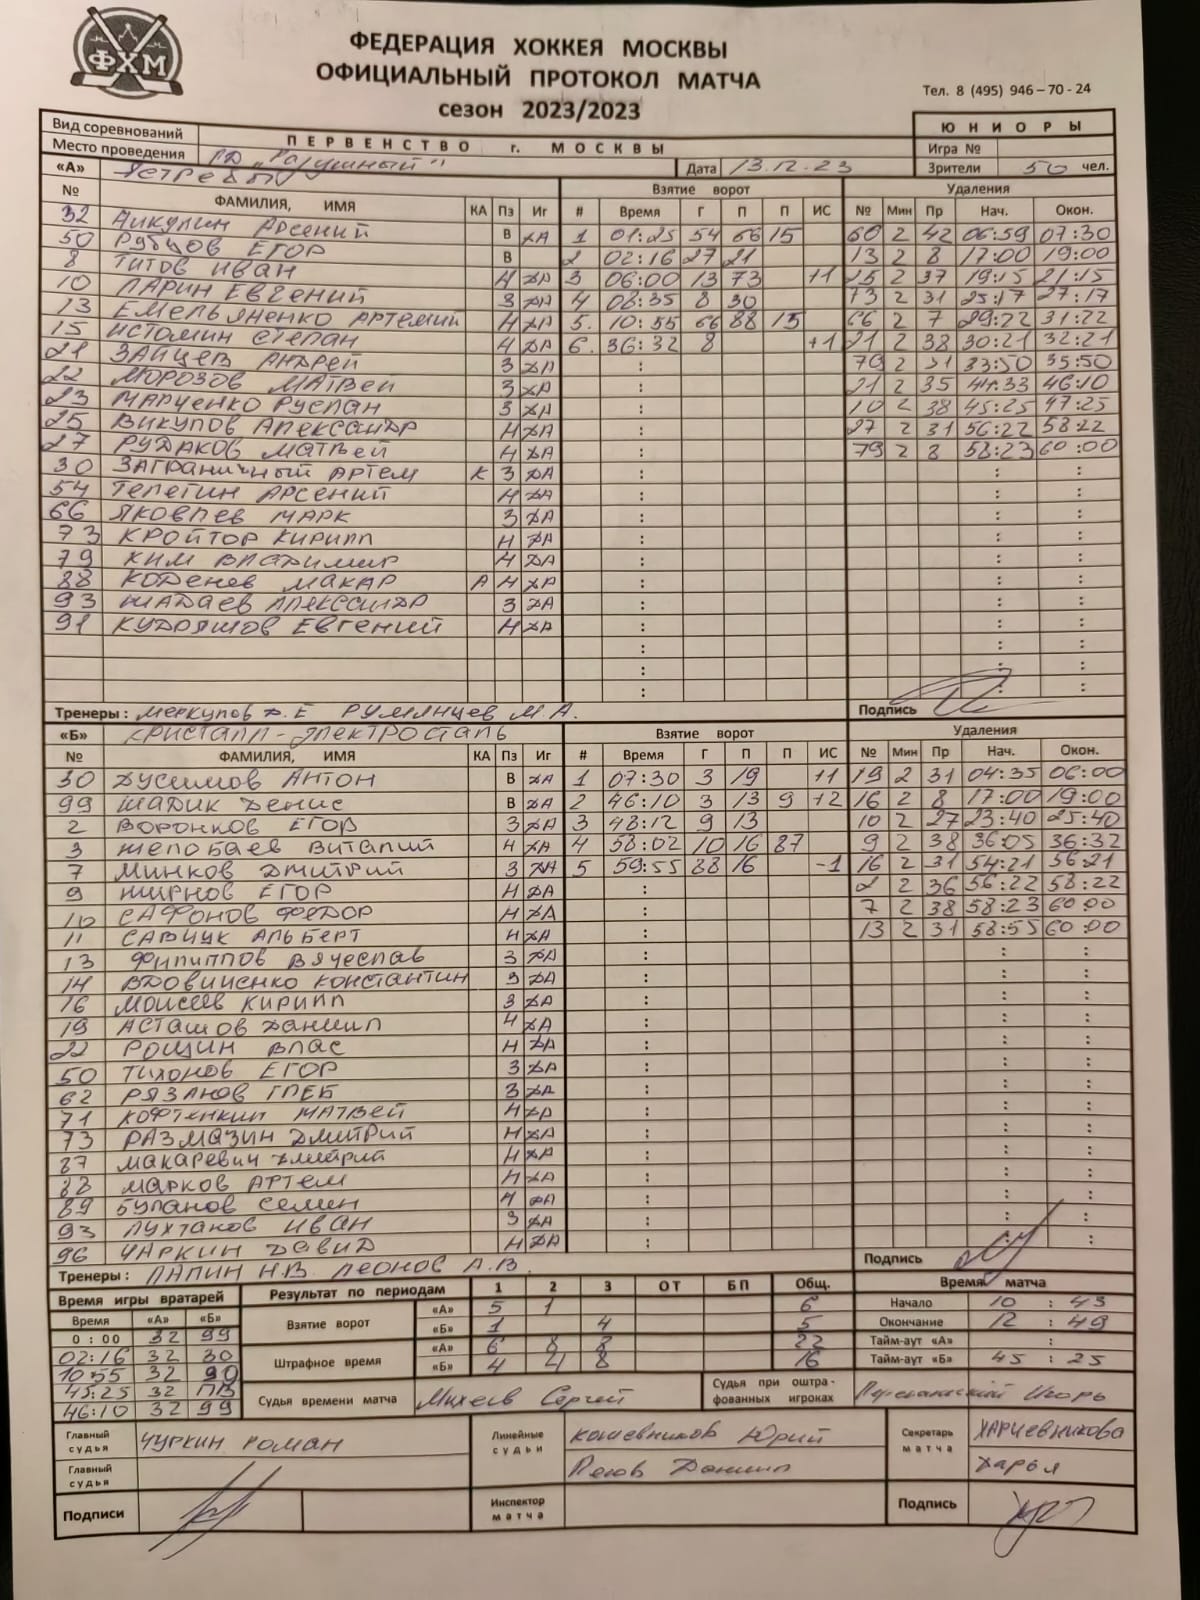 ФХМ
ФЕДЕРАЦИЯ ХОККЕЯ МОСКВЫ
ОФИЦИАЛЬНЫЙ ПРОТОКОЛ МАТЧА
сезон 2023/2023
Тел. 8 (495) 946-70-24
Вид соревнований ПЕРВЕНСТВО г. МОСКВЫ ЮНИОРЫ
Место проведения Игра №
«А» Ястребы Дата 13.12.23 Зрители 50 чел.
Взятие ворот Удаления
№ ФАМИЛИЯ, ИМЯ КА Пз Иг # Время Г П П ИС № Мин Пр Нач. Окон.
32 Арсений В ДА 1 01:25 54 66 15 60 2 42 06:59 07:30
50 Рубцов Егор В 2 02:16 27 21 13 2 8 17:00 19:00
8 Титов Иван Н ДА 3 06:00 13 73 +1 25 2 37 19:15 21:15
10 Ларин Евгений З ДА 4 08:35 8 30 73 2 31 25:17 27:17
13 Емельяненко Артемий Н ДА 5. 10:55 66 88 15 66 2 7 29:22 31:22
15 Истомин Степан Н ДА 6. 36:32 8 +1 21 2 38 30:21 32:21
21 Зайцев Андрей З ДА : 79 2 31 33:50 35:50
22 Морозов Матвей З ДА : 21 2 35 44:33 46:10
23 Марченко Руслан З ДА : 10 2 38 45:25 47:25
25 Викулов Александр Н ДА : 27 2 31 56:22 58:22
27 Рудаков Матвей Н ДА : 79 2 8 58:23 60:00
30 Заграничный Артем К З ДА : :
54 Телегин Арсений Н ДА : :
66 Яковлев Марк З ДА : :
73 Кройтор Кирилл Н ДА : :
79 Ким Владимир Н ДА : :
88 Коденев Макар А Н ДА : :
93 Шадаев Александр З ДА : :
91 Кудряшов Евгений Н ДА : :
Тренеры: Меркулов Д.Е Румянцев М.А. Подпись
«Б» Кристалл-Электросталь Взятие ворот Удаления
№ ФАМИЛИЯ, ИМЯ КА Пз Иг # Время Г П П ИС № Мин Пр Нач. Окон.
30 Дусимов Антон В ДА 1 07:30 3 19 +1 19 2 31 04:35 06:00
99 Шадик Денис В ДА 2 46:10 3 13 9 +2 16 2 8 17:00 19:00
2 Воронков Егор З ДА 3 48:12 9 13 10 2 27 23:40 25:40
3 Желобаев Виталий Н ДА 4 58:02 10 16 87 9 2 38 36:05 36:32
7 Минков Дмитрий З ДА 5 59:55 88 16 -1 16 2 31 54:21 56:21
9 Жирнов Егор Н ДА : 2 2 36 56:22 58:22
10 Сафонов Федор Н ДА : 7 2 38 58:23 60:00
11 Савицк Альберт Н ДА : 13 2 31 58:55 60:00
13 Филиппов Вячеслав З ДА : :
14 Вдовиченко Константин З ДА : :
16 Моисеев Кирилл З ДА : :
19 Асташов Даниил Н ДА : :
22 Рощин Влас Н ДА : :
50 Тихонов Егор З ДА : :
62 Рязанов Глеб З ДА : :
71 Кофтенкин Матвей Н ДА : :
73 Размазин Дмитрий Н ДА : :
87 Макаревич Дмитрий Н ДА : :
88 Марков Артем Н ДА : :
89 Буланов Семен Н ДА : :
93 Лухтанов Иван З ДА : :
96 Чаркин Давид Н ДА : :
Тренеры: Лапин Н.В. Леонов А.В. Подпись
Время игры вратарей Результат по периодам 1 2 3 ОТ БП Общ. Время матча
Время «А» «Б» Взятие ворот «А» 5 1 6 Начало 10 : 43
0 : 00 32 99 «Б» 1 4 5 Окончание 12 : 49
02:16 32 30 Штрафное время «А» 6 8 8 22 Тайм-аут «А» :
10:55 32 «Б» 4 4 8 16 Тайм-аут «Б» 45 : 25
45:25 32 ПВ Судья времени матча Михеев Сергей Судья при оштрафованных игроках Игорь
46:10 32 99
Главный судья Чуркин Роман Линейные судьи Кошевников Юрий Секретарь матча Харчевникова
Главный судья Даниил Дарья
Подписи Инспектор матча Подпись